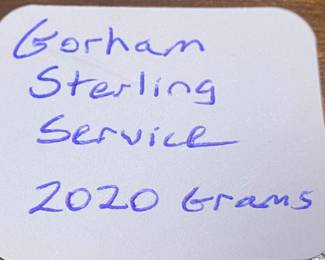 Gorham
Sterling
Service
2020 Grams